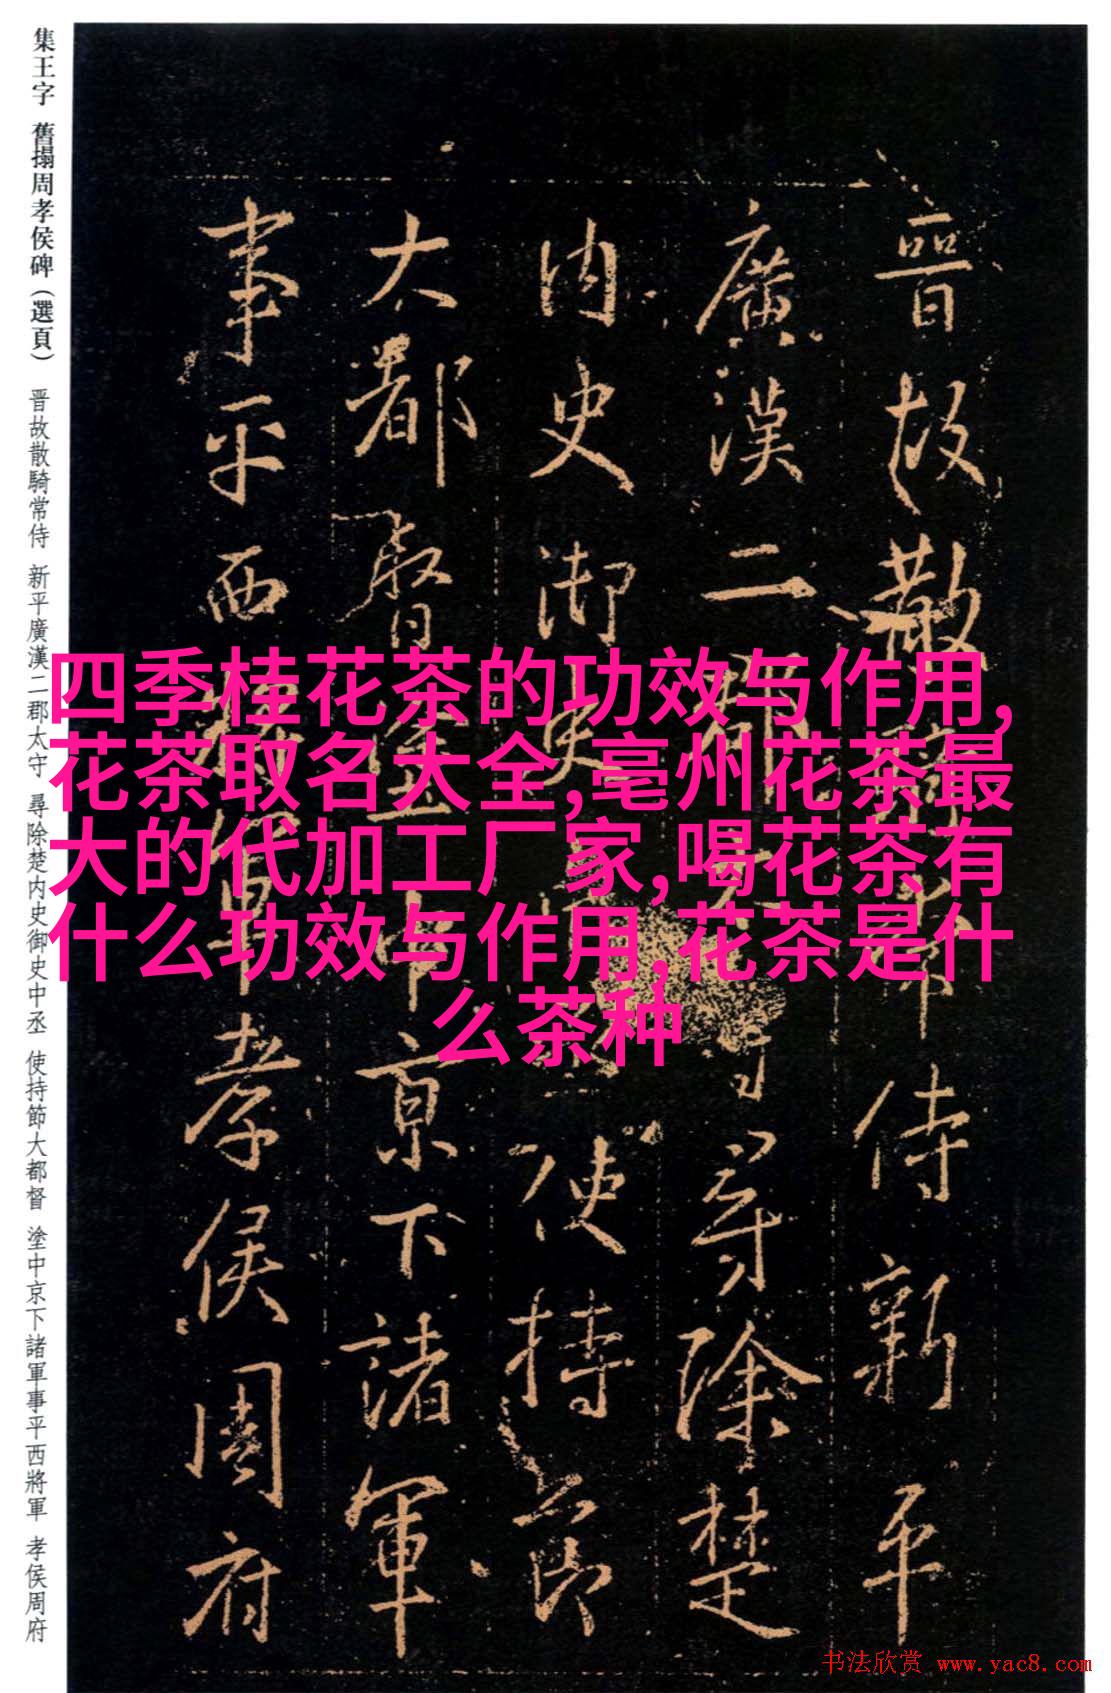 集王字 舊搨周孝侯碑（選頁） 晋故散騎常侍 新平廣漢二郡太守 尋除楚内史御史中丞 使持節大都督 塗中京下諸軍事平西將軍 孝侯周府
晉故散騎常侍新平
廣漢二郡太守尋除楚
内史御史中丞使持節
大都督塗中京下諸軍
事平西將軍孝侯周府
四季桂花茶的功效与作用,
花茶取名大全,亳州花茶最
大的代加工厂家,喝花茶有
什么功效与作用,花茶是什
么茶种
书法欣赏 www.yac8.com